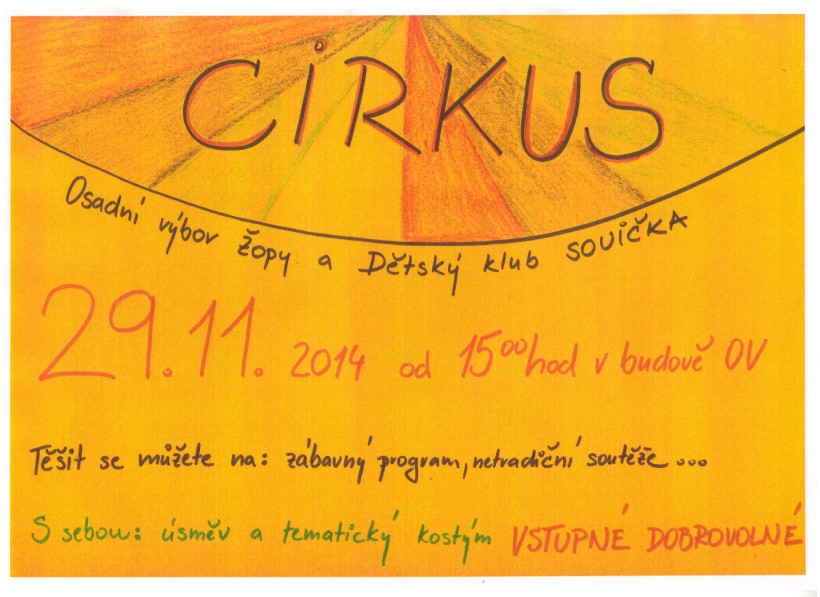 CIRKUS
Osadní výbor Žopy a Dětský klub SOVIČKA
29.11. 2014 od 15⁰⁰hod v budově OV
Těšit se můžete na: zábavný program, netradiční soutěže...
S sebou: úsměv a tematický kostým VSTUPNÉ DOBROVOLNÉ